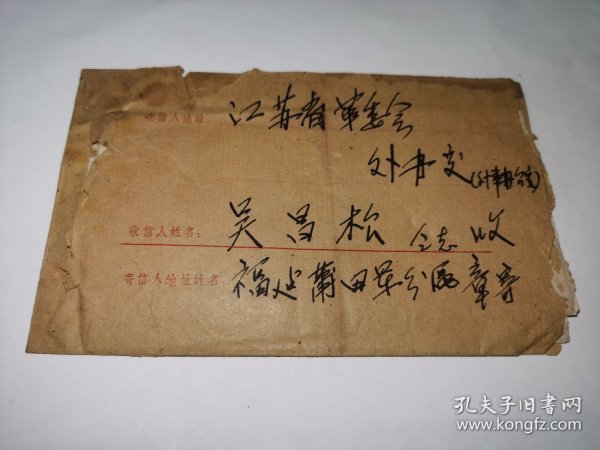 收信人地址: 江苏省革委会
外办交(外事办公室)
收信人姓名: 吴昌松 仝志 收
寄信人地址姓名: 福建莆田军分区章寄
孔夫子旧书网
www.kongfz.com